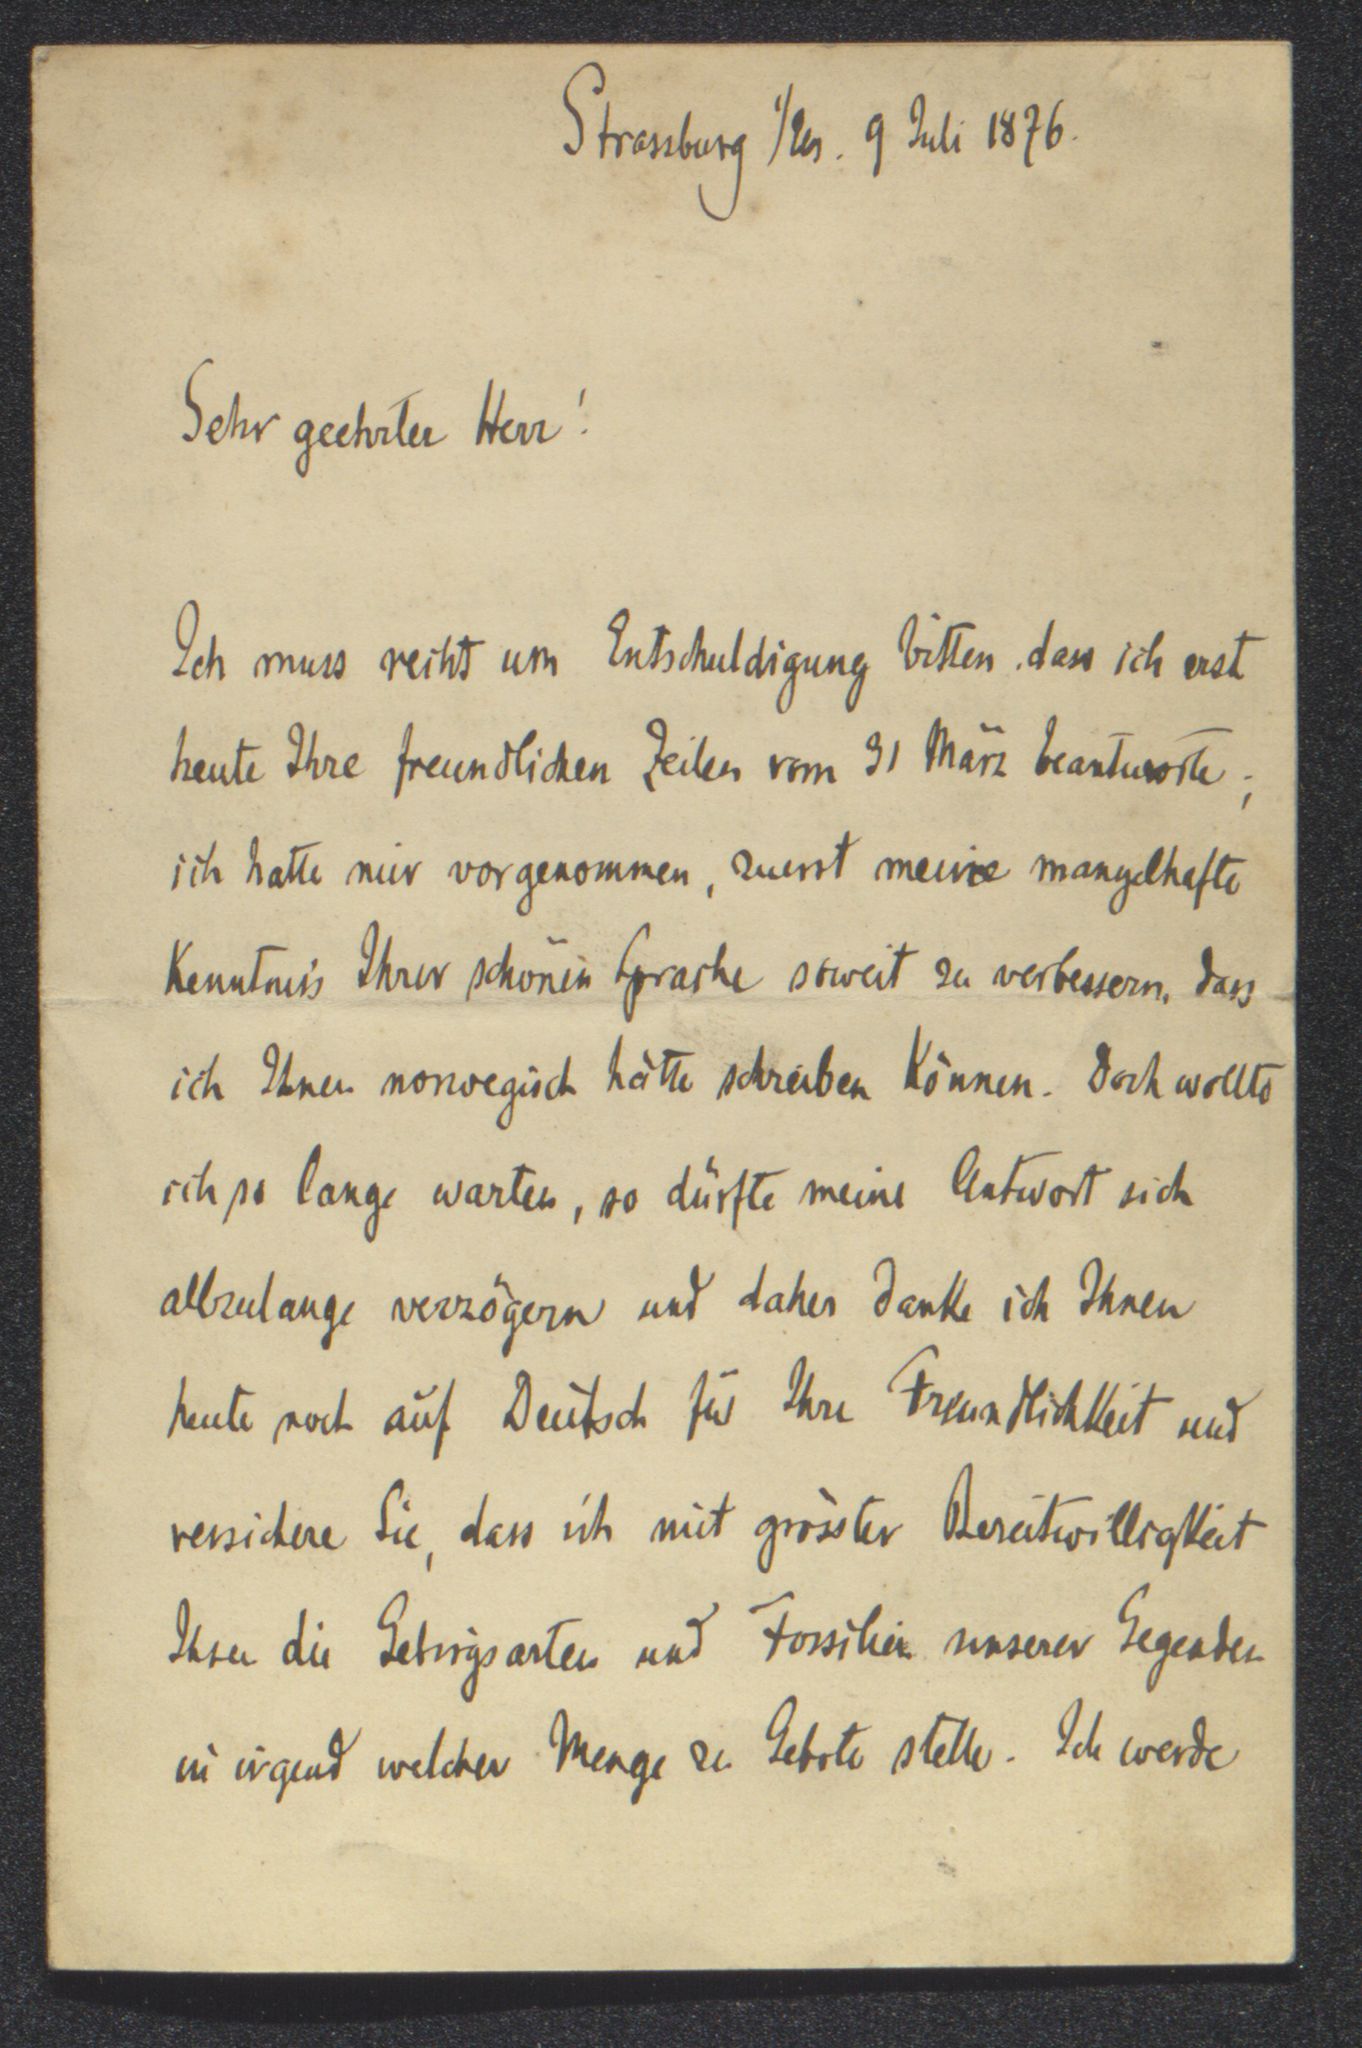 Strassburg i/Els. 9 Juli 1876.
Sehr geehrter Herr!
Ich muss recht um Entschuldigung bitten, dass ich erst
heute Ihre freundlichen Zeilen vom 31 März beantworte;
ich hatte mir vorgenommen, zuerst meine mangelhafte
Kenntnis Ihrer schönen Sprache soweit zu verbessern, dass
ich Ihnen norwegisch hätte schreiben können. Doch wollte
ich so lange warten, so dürfte meine Antwort sich
allzulange verzögern und daher danke ich Ihnen
heute noch auf Deutsch für Ihre Freundlichkeit und
versichere Sie, dass ich mit grösster Bereitwilligkeit
Ihnen die Gebirgsarten und Fossilien unserer Gegenden
in irgend welcher Menge zu Gebote stelle. Ich werde